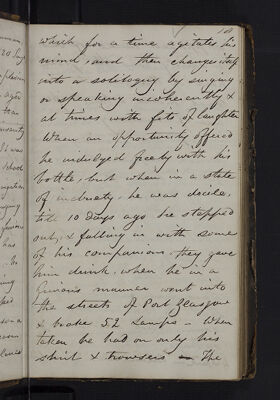 which for a time agitates his
mind, and then changes itself
into a soliloquy by singing
or speaking incoherently &
at times with fits of laughter
When an opportunity offered
he indulged freely with his
bottle, but when in a state
of inebriety, he was docile,
till 10 days ago he stepped
out, & falling in with some
of his companions, they gave
him drink, when he in a
furious manner went into
the streets of Port Glasgow
& brake 52 lamps – When
taken he had on only his
shirt & trowsers – The